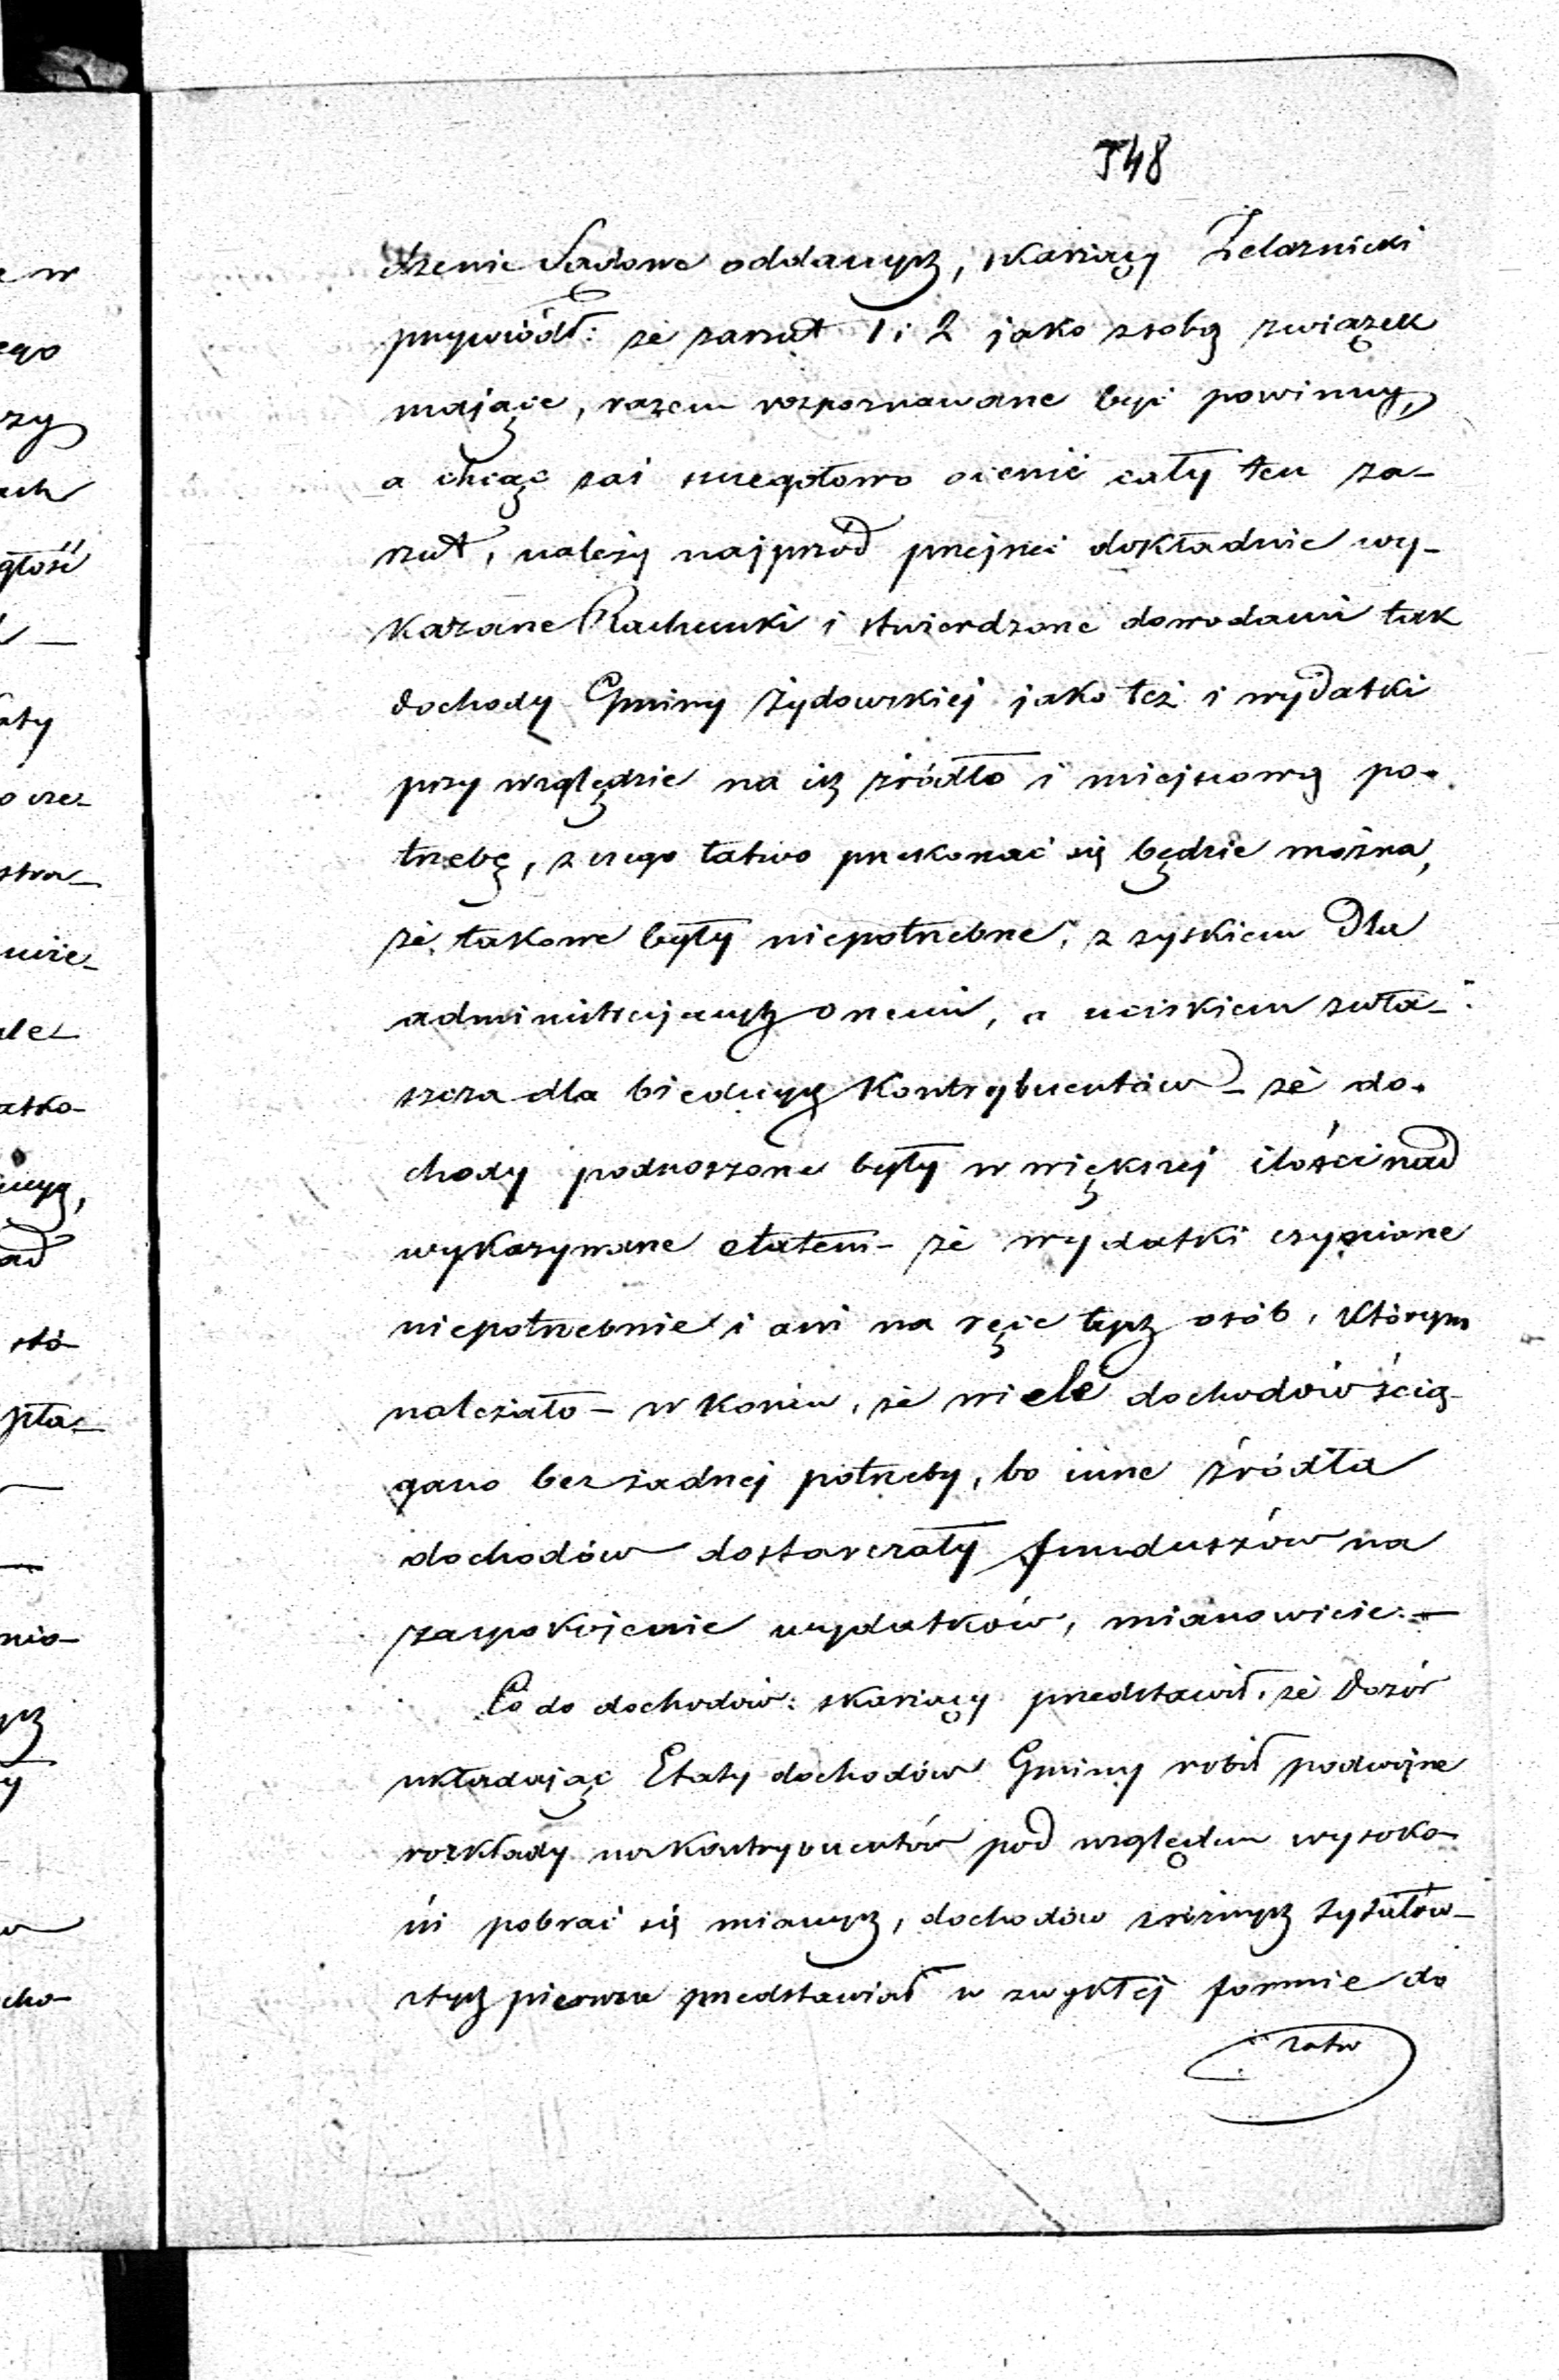 548
dzenie Sądowe oddanych, skarżący Żelaznicki
przywiódł: że zarzut 1 i 2 jako z sobą związek
mające, razem rozpoznawane być powinny,
a chcąc zaś szczegółowo ocenić cały ten za-
rzut, należy najprzód przejrzeć dokładnie wy-
kazane Rachunki i stwierdzone dowodami tak
dochody Gminy żydowskiej jako też i wydatki
przy względzie na ich źródło i miejscową po-
trzebę, z czego łatwo przekonać się będzie można,
że takowe były niepotrzebne, z zyskiem dla
administrujących onemi, a uciskiem zwła-
szcza dla biednych Kontrybuentów – że do-
chody podnoszone były w większej ilości nad
wykazywane etatem – że wydatki czynione
niepotrzebnie i ani na ręce tych osób, którym
należało – w końcu, że wiele dochodów ścią-
gano bez żadnej potrzeby, bo inne źródła
dochodów dostarczały funduszów na
zaspokojenie wydatków, mianowicie: –
Co do dochodów: skarżący przedstawił, że Dozór
układając Etaty dochodów Gminy robił podwójne
rozkłady na Kontrybuentów pod względem wysoko-
ści pobrać się mianych, dochodów z różnych tytułów –
z tych pierwsze przedstawiał w zwykłej formie do
zatw